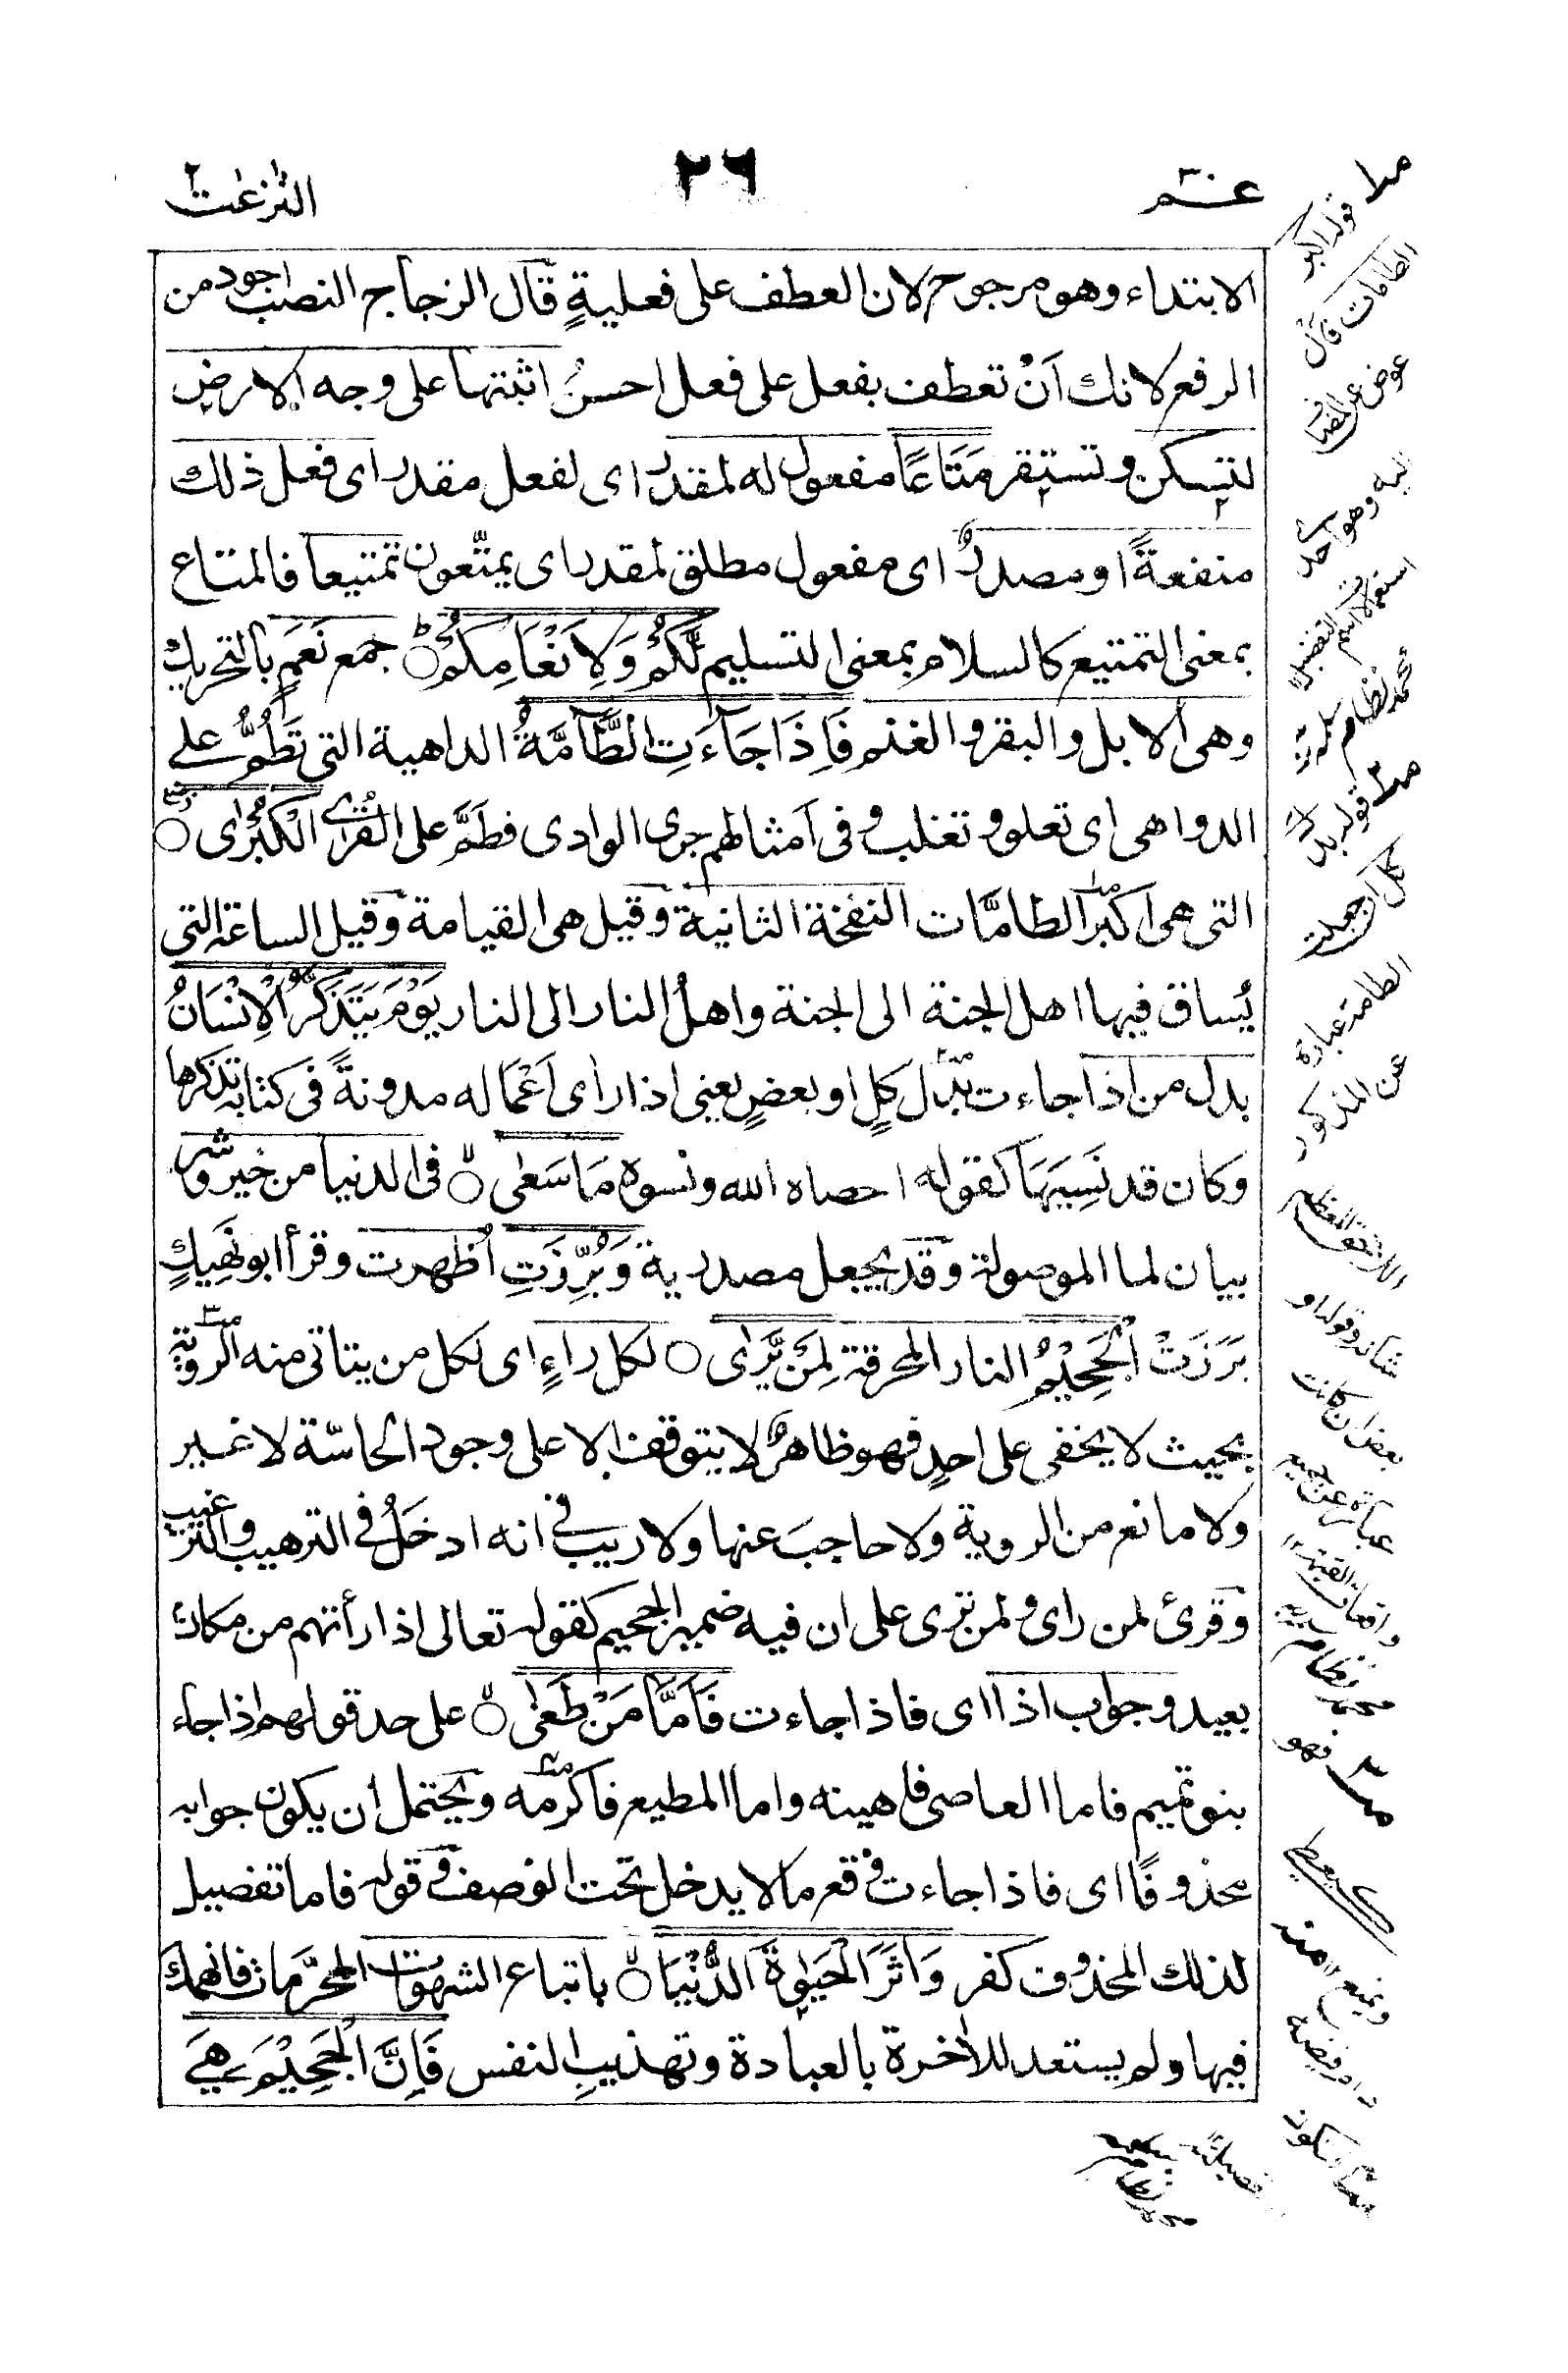 عـــم ٣٠
٢٦
النّزعٰت
الابتداء وهو مرجوح لان العطف على فعليةٍ قال الزجاج النصب اجود من
الرفع لانك اَنْ تعطف بفعل على فعل احسنُ اثبتها على وجه الارض
لتسكن وتستقر مَتَاعًا مفعول له لمقدر اى لفعل مقدر اى فعل ذلك
منفعةً او مصدرٌ اى مفعول مطلق لمقدر اى يمتّعون تمتيعا فالمتاع
بمعنى التمتيع كالسلام بمعنى التسليم لَّكُمْ وَلِاَنْعَامِكُمْ ۝ جمع نَعَم بالتحريك
وهى الابل والبقر والغنم فَاِذَا جَآءَتِ الطَّآمَّةُ الداهية التى تَطُمُّ على
الدواهى اى تعلو وتغلب وفى اَمثالهم جرى الوادى فطَمَّ على القُرٰى الْكُبْرٰى ۝
التى هى اكبر الطامَّات النفخة الثانية وقيل هى القيامة وقيل الساعة التى
يُساق فيها اهل الجنة الى الجنة واهلُ النار الى النار يَوْمَ يَتَذَكَّرُ الْاِنْسَانُ
بدل من اذا جاءت بدل كلٍ او بعضٍ يعنى اذا راى اَعْمَاله مدونةً فى كتابه تذكرها
وكان قد نَسِيَهَا كقوله احصاه الله ونسوه مَا سَعٰى ۝ فى الدنيا من خير وشر
بيان لما الموصولة وقد يجعل مصدرية وَبُرِّزَتِ اُظهرت وقرأ ابو نَهِيكٍ
بَرَزَتْ الْجَحِيْمُ النار المحرقة لِمَنْ يَّرٰى ۝ لكل راءٍ اى لكل من يتاتى منه الروية
بحيث لا يخفى على احدٍ فهو ظاهرٌ لا يتوقف الا على وجود الحاسّة لا غير
ولا مانع من الروية ولا حاجبَ عنها ولا ريب فى انه ادخَلُ فى الترهيب والترغيب
وقرئ لمن راى ولمن ترى على ان فيه ضمير الجحيم كقوله تعالى اذا رأتهم من مكان
بعيد وجواب اذا اى فاذا جاءت فَاَمَّا مَنْ طَغٰى ۝ على حد قولهم اذا جاء
بنو تميم فاما العاصى فاهينه واما المطيع فاكرمه ويحتمل ان يكون جوابه
محذوفًا اى فاذا جاءت وقع ما لا يدخل تحت الوصف وقوله فاما تفصيل
لذلك المحذوف كفر وَاٰثَرَ الْحَيٰوةَ الدُّنْيَا ۝ باتباع الشهوات المحرَّمات فانهمك
فيها ولم يستعد للاٰخرة بالعبادة وتهذيبِ النفس فَاِنَّ الْجَحِيْمَ هِيَ
قوله اكبر
الطامات قال
عوض عن المضاف
اليه وهو احد
استعمالات اسم التفضيل
كل اجعلت
الطامة عبارة
عن المذكور